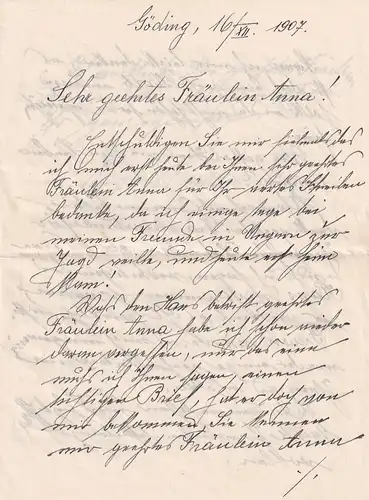 Göding, 16/XII. 1907.
Sehr geehrtes Fräulein Anna!
Entschuldigen Sie mir das
ich mich erst heute bei Ihnen sehr geehrtes
Fräulein Anna für Ihr wertes Schreiben
bedanke, da ich einige tage bei
meinen Freunde in Ungarn zur
Jagd weilte, und heute erst heim
kam!
Was den Hans betrifft geehrtes
Fräulein Anna habe ich schon wieder
daran vergessen, nur das eine
muhs ich Ihnen sagen, einen
tüchtigen Brief, hat er doch von
mir bekommen, Sie kennen
mir geehrtes Fräulein Anna
./.